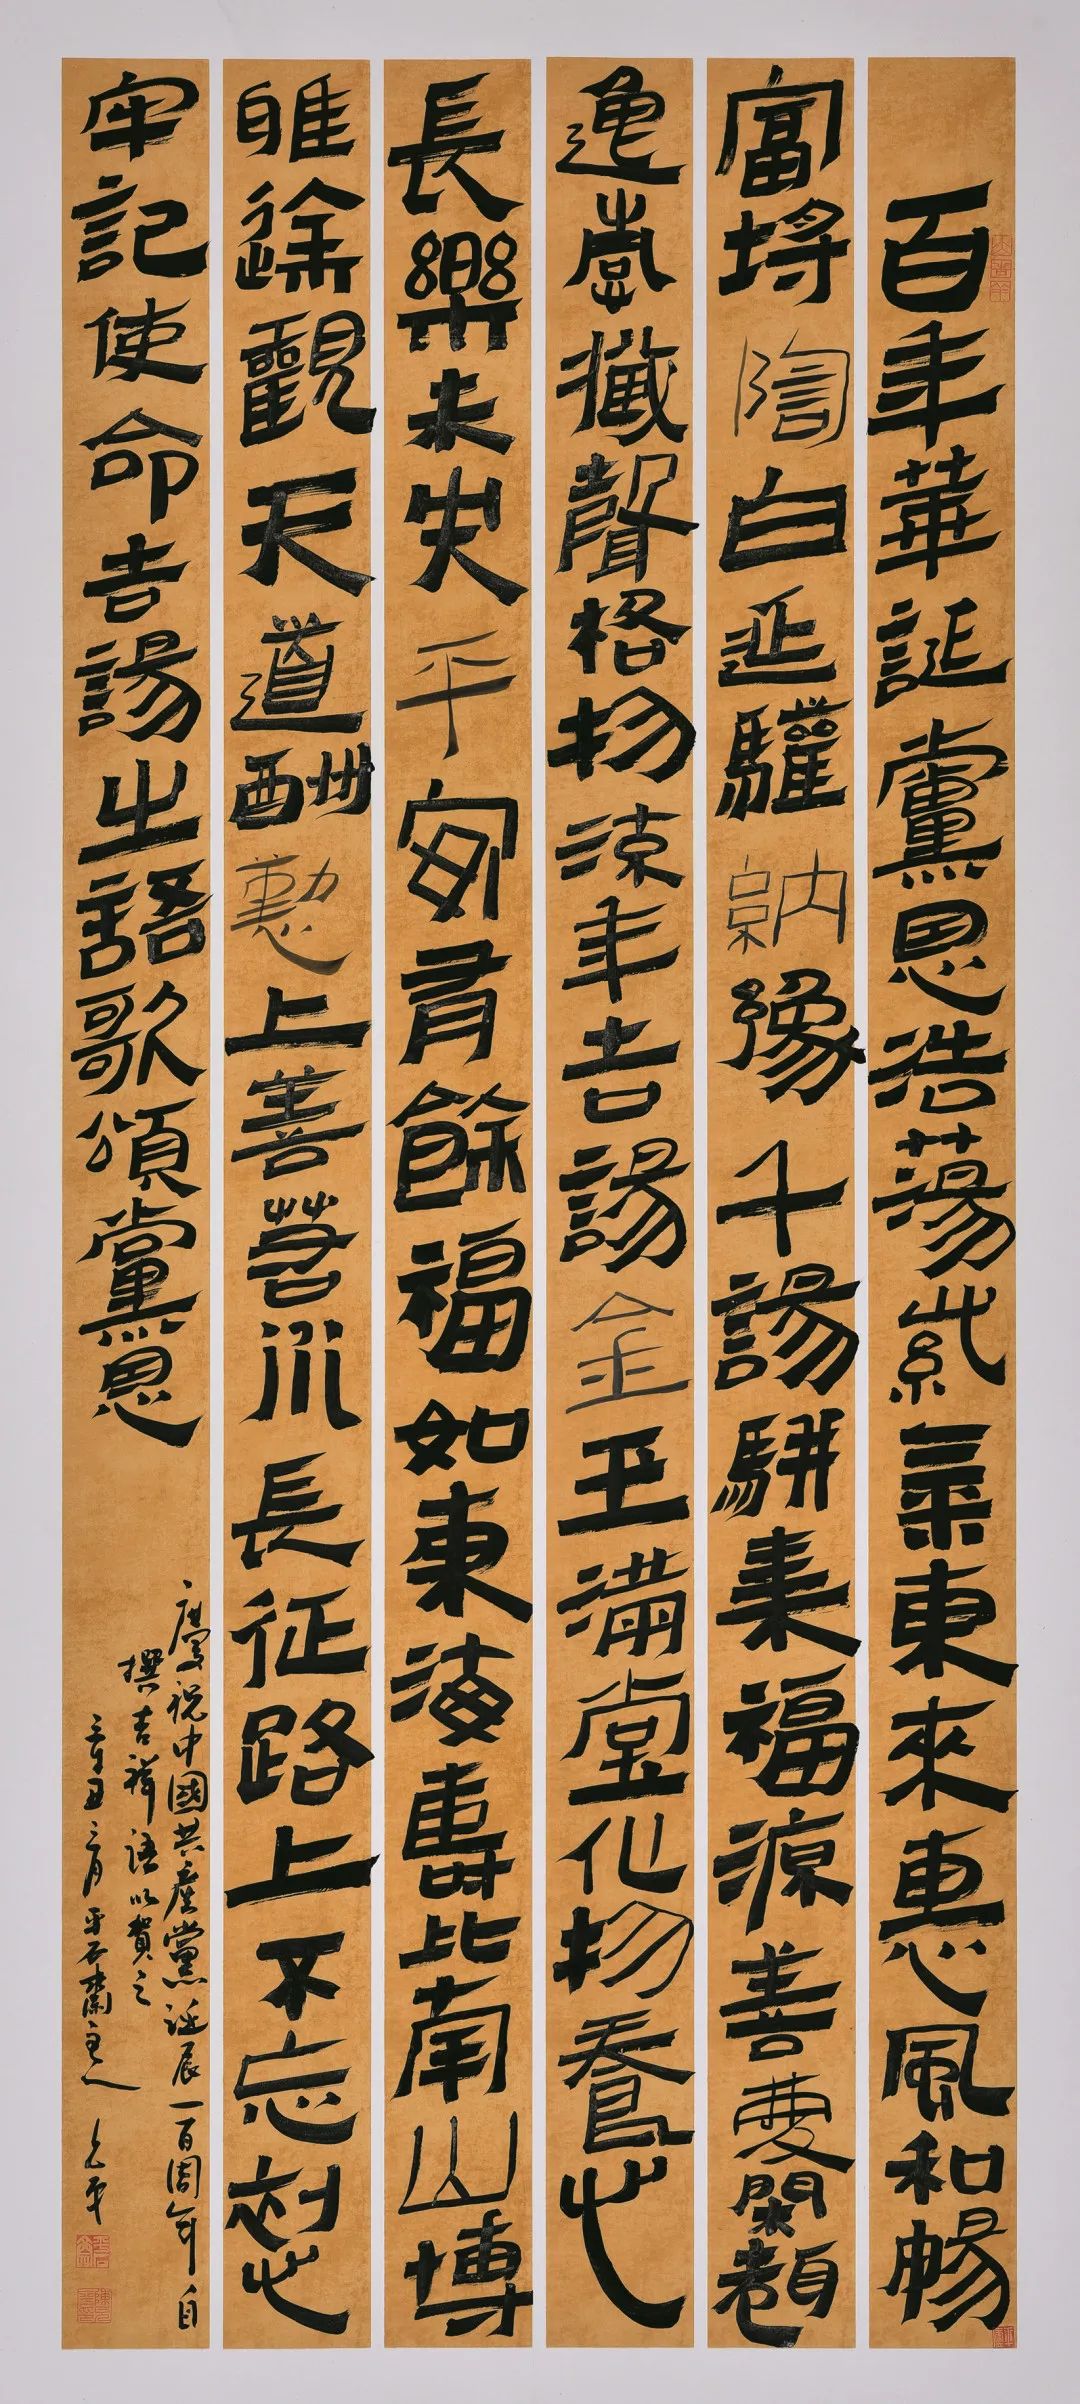 百年華誕黨恩浩蕩紫氣東來惠風和暢
富埒陶白延驩納豫千諹駢福源善慶
藏聲格物年吉諹金玉滿堂化物養心
長樂未央平安有餘福如東海壽比南山博
觀天道酬懃上善若水長征路上不忘初心
牢記使命吉諹之語歌頌黨恩
慶祝中國共產黨誕辰一百周年自
撰吉祥語以賀之
辛丑三月平石齋主人